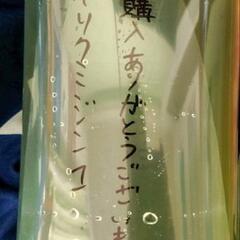 購入ありがとうございま
リクミジンコ